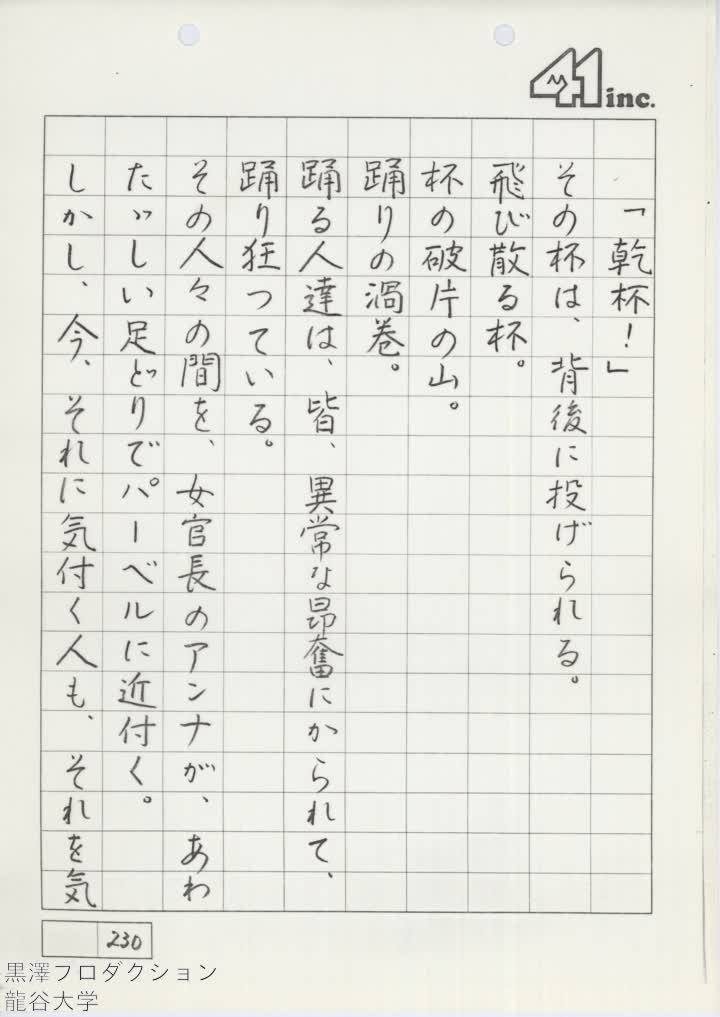 41 inc.
「乾杯!」
その杯は、背後に投げられる。
飛び散る杯。
杯の破片の山。
踊りの渦巻。
踊る人達は、皆、異常な昂奮にかられて、
踊り狂っている。
その人々の間を、女官長のアンナが、あわ
たゞしい足どりでパーベルに近付く。
しかし、今、それに気付く人も、それを気
230
黒澤プロダクション
龍谷大学